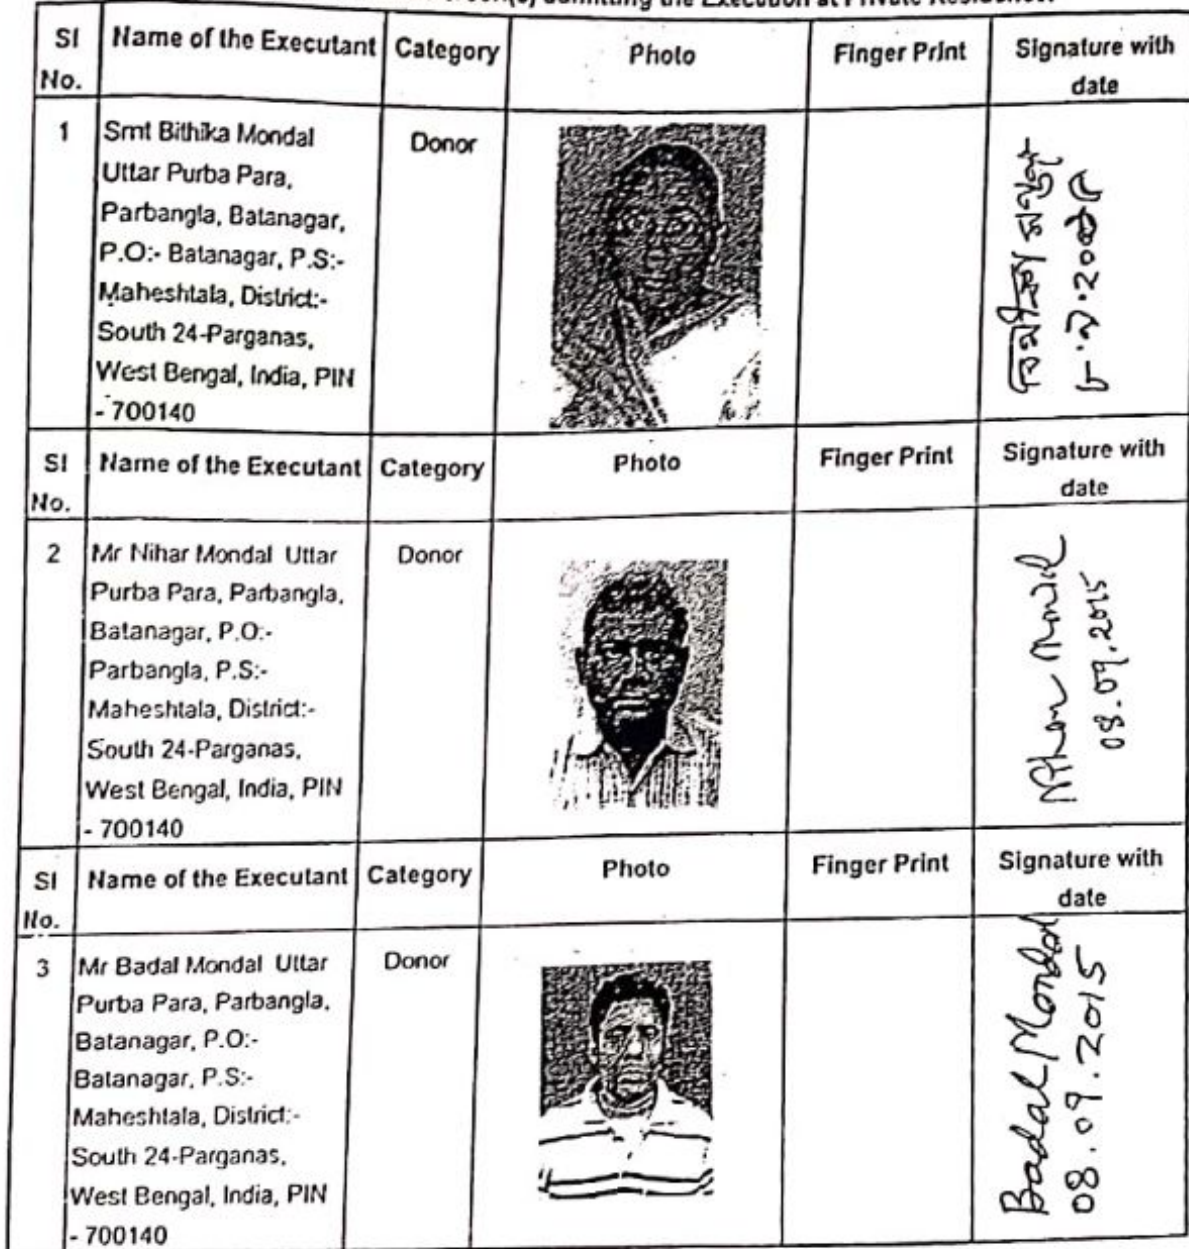 admitting the Execution at Private Residence.
Sl No. Name of the Executant Category Photo Finger Print Signature with date
1 Smt Bithika Mondal
Uttar Purba Para,
Parbangla, Batanagar,
P.O:- Batanagar, P.S:-
Maheshtala, District:-
South 24-Parganas,
West Bengal, India, PIN
- 700140
Donor
Sl No. Name of the Executant Category Photo Finger Print Signature with date
2 Mr Nihar Mondal Uttar
Purba Para, Parbangla,
Batanagar, P.O:-
Parbangla, P.S:-
Maheshtala, District:-
South 24-Parganas,
West Bengal, India, PIN
- 700140
Donor
08.09.2015
Sl No. Name of the Executant Category Photo Finger Print Signature with date
3 Mr Badal Mondal Uttar
Purba Para, Parbangla,
Batanagar, P.O:-
Batanagar, P.S:-
Maheshtala, District:-
South 24-Parganas,
West Bengal, India, PIN
- 700140
Donor
Badal Mondal
08.09.2015